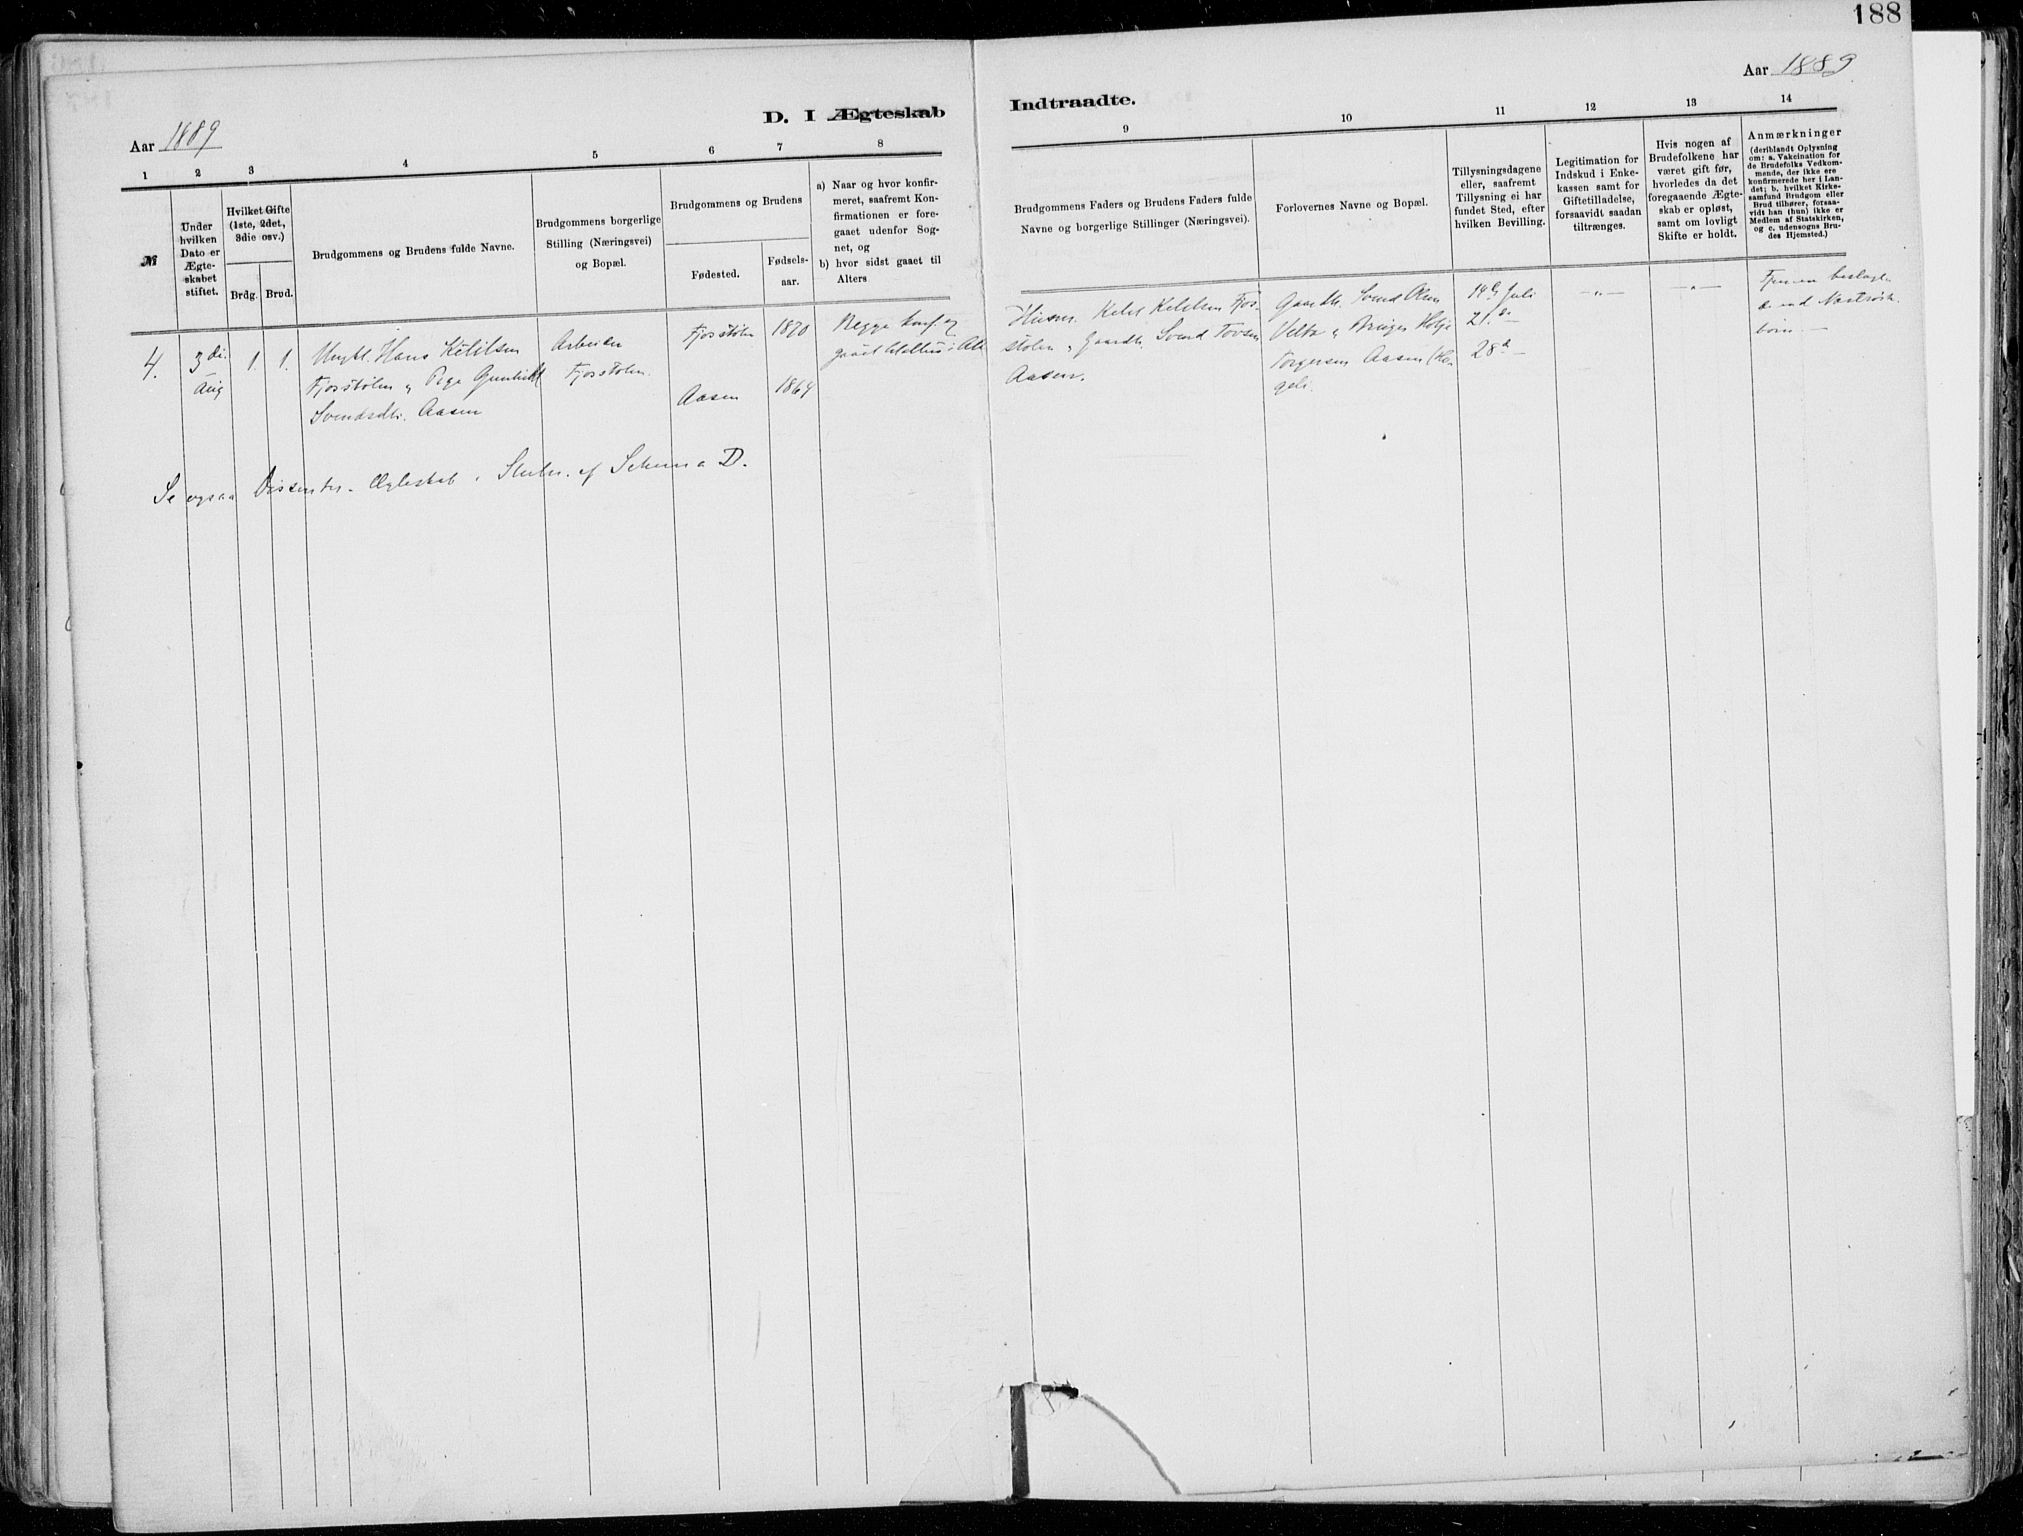 188
Aar 1889
D. I Ægteskab
Aar 1889
Indtraadte.
1
2
3
4
5
6
7
8
№
Under hvilken Dato er Ægteskabet stiftet.
Hvilket Gifte (1ste, 2det, 3die osv.)
Brdg.
Brud.
Brudgommens og Brudens fulde Navne.
Brudgommens borgerlige
Stilling (Næringsvei)
og Bopæl.
Brudgommens og Brudens
Fødested.
Fødsels-
aar.
a) Naar og hvor konfir-
meret, saafremt Kon-
firmationen er fore-
gaaet udenfor Sog-
net, og
b) hvor sidst gaaet til
Alters
9
10
11
12
13
14
Brudgommens Faders og Brudens Faders fulde
Navne og borgerlige Stillinger (Næringsvei).
Forlovernes Navne og Bopæl.
Tillysningsdagene
eller, saafremt
Tillysning ei har
fundet Sted, efter
hvilken Bevilling.
Legitimation for
Indskud i Enke-
kassen samt for
Giftetilladelse,
forsaavidt saadan
tiltrænges.
Hvis nogen af
Brudefolkene har
været gift før,
hvorledes da det
foregaaende Ægte-
skab er opløst,
samt om lovligt
Skifte er holdt.
Anmærkninger
(deriblandt Oplysning
om: a. Vakcination for
de Brudefolks Vedkom-
mende, der ikke ere
konfirmerede her i Lan-
det; b. hvilket Kirke-
samfund Brudgom eller
Brud tilhører, forsaa-
vidt han (hun) ikke er
Medlem af Statskirken,
og c. udensogns Bru-
des Hjemsted.)
4.
3di
Aug
1.
1.
Ungkl. Hans Ketilsen
Fjosstølen og Pige Gunhild
Svendsdtr. Aasen
Arbeider
Fjosstølen.
Fjosstølen
Aasen
1870
1864
Begge konf. og
Husm. Ketil Ketilsen Fjos-
stølen og Gaardb. Svend Tovsen
Aasen.
Gaardb. Svend Olsen
Torgersen Aasen
14de Juli
21de -
28de -
-"-
-"-
Se ogsaa Dissenter-Ægteskab i Slutn. af Schema D.